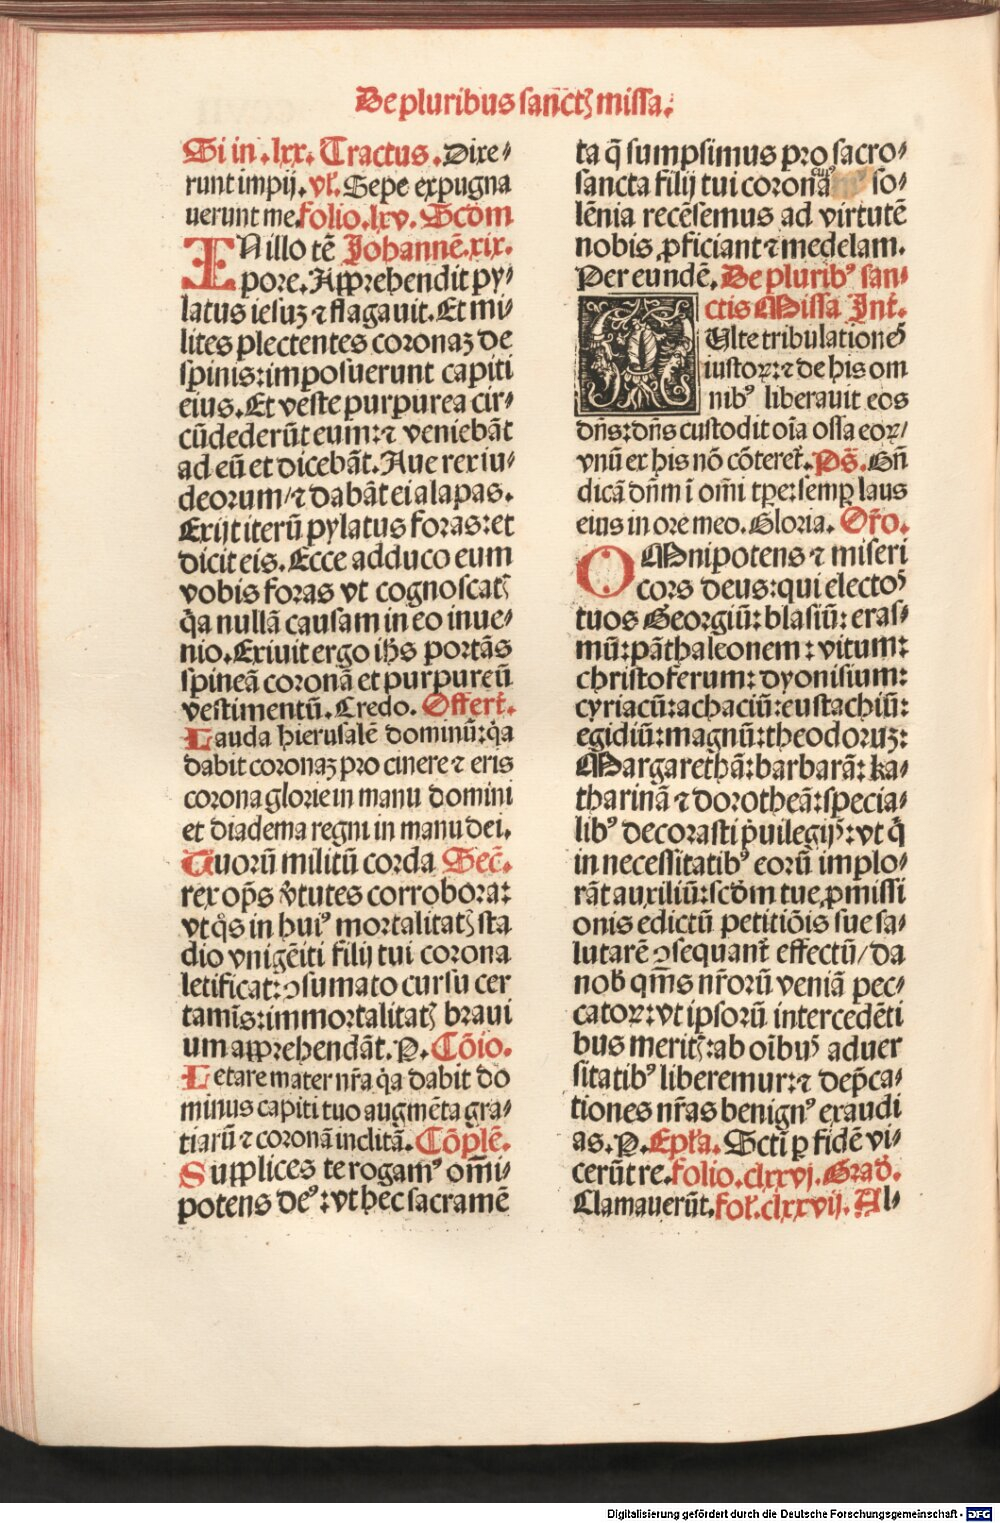 De pluribus sanctꝭ missa.
Si in .lxx. Tractus. Dixe⸗
runt impij. vl'. Sepe expugna
uerunt me. folio .lxv. Scdm
IN illo tẽ Johannẽ. xix.
pore. Apprehendit py⸗
latus iesuz ⁊ flagauit. Et mi⸗
lites plectentes coronaz de
spinis: imposuerunt capiti
eius. Et veste purpurea cir⸗
cũdederũt eum: ⁊ veniebãt
ad eũ et dicebãt. Aue rex iu⸗
deorum/ ⁊ dabãt ei alapas.
Exijt iterũ pylatus foras: et
dicit eis. Ecce adduco eum
vobis foras vt cognoscatꝭ
q̃a nullã causam in eo inue⸗
nio. Exiuit ergo ihs̃ portãs
spineã coronã et purpureũ
vestimentũ. Credo. Offert̃.
Lauda hierusalẽ dominũ: q̃a
dabit coronaz pro cinere ⁊ eris
corona glorie in manu domini
et diadema regni in manu dei.
Tuorũ militũ corda Sec̃.
rex op̃s v̾tutes corrobora:
vt q̃s in huiꝰ mortalitatꝭ sta
dio vnigẽiti filij tui corona
letificat: ꝯsumato cursu cer
tamĩs: immortalitatꝭ braui
um apprehendãt. P. Cõio.
Letare mater nr̃a q̃a dabit do
minus capiti tuo augmẽta gra⸗
tiarũ ⁊ coronã inclitã. Cõplẽ.
Supplices te rogamꝰ om̃i⸗
potens deꝰ: vt hec sacramẽ
ta q̃ sumpsimus pro sacro⸗
sancta filij tui coronã cuiꝰ so⸗
lẽnia recẽsemus ad virtutẽ
nobis ꝓficiant ⁊ medelam.
Per eundẽ. De pluribꝰ san⸗
ctis Missa Int̃.
Multe tribulationeꝭ
iustoꝝ: ⁊ de his om
nibꝰ liberauit eos
dñs: dñs custodit oĩa ossa eoꝝ/
vnũ ex his nõ cõteret̃. Ps̃. Bñ
dicã dñm ĩ om̃i tp̃e: semꝑ laus
eius in ore meo. Gloria. Or̃o.
OMnipotens ⁊ miseri
cors deus: qui electoꝭ
tuos Georgiũ: blasiũ: eras⸗
mũ: pãthaleonem: vitum:
christoferum: dyonisium:
cyriacũ: achaciũ: eustachiũ:
egidiũ: magnũ: theodoruz:
Margarethã: barbarã: ka⸗
tharinã ⁊ dorotheã: specia⸗
libꝰ decorasti p̾uilegijꝭ: vt q̃
in necessitatibꝰ eorũ implo⸗
rãt auxiliũ: scd̃m tue ꝓmissi
onis edictũ petitiõis sue sa⸗
lutarẽ ꝯsequant̃ effectũ/ da
nob̾ qm̃s nr̃orũ veniã pec⸗
catoꝝ: vt ipsorũ intercedẽti
bus meritꝭ: ab oĩbuꝭ aduer
sitatibꝰ liberemur: ⁊ dep̃ca⸗
tiones nr̃as benignꝰ exaudi
as. P. Epl'a. Scti ꝑ fidẽ vi⸗
cerũt re. folio. clxxvj. Grad̾.
Clamauerũt. fol'. clxxvij. Al⸗
Digitalisierung gefördert durch die Deutsche Forschungsgemeinschaft - DFG